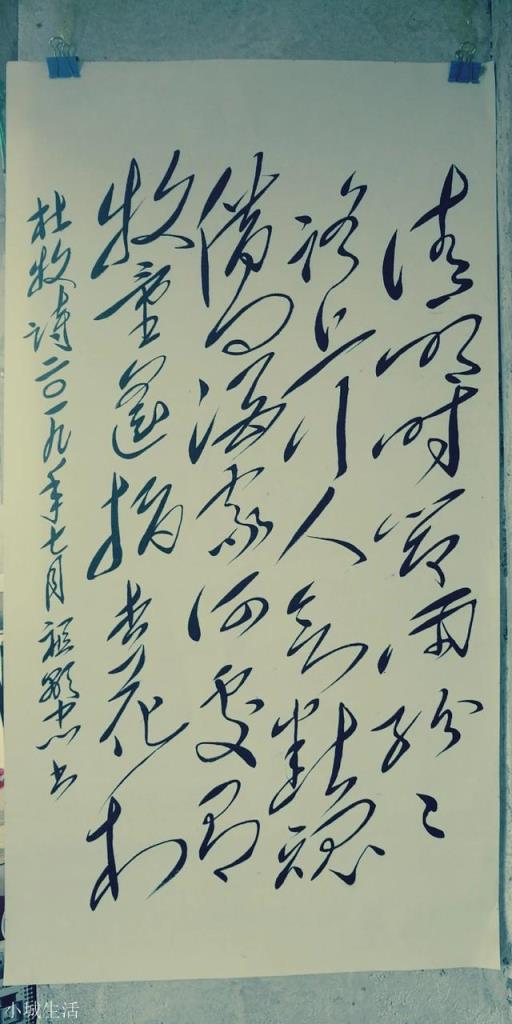 清明时节雨纷々
路上行人欲断魂
借问酒家何处有
牧童遥指杏花村
杜牧诗二〇一九年七月书
小城生活